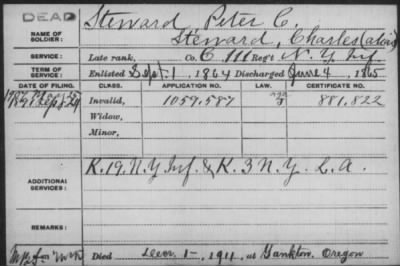 DEAD
NAME OF SOLDIER:
Steward Peter C.
Steward, Charles (alias)
SERVICE:
Late rank, Co. C, 111 Reg't N. Y. Inf.
TERM OF SERVICE:
Enlisted Sept. 1, 1864 Discharged June 4, 1865
DATE OF FILING. CLASS. APPLICATION NO. LAW. CERTIFICATE NO.
Invalid, 1057.587 881,822
Widow,
Minor,
ADDITIONAL SERVICES:
K. 19. N. Y. Inf. & K. 3 N. Y. L. A.
REMARKS:
Died 1- 1911, at Yankton, Oregon